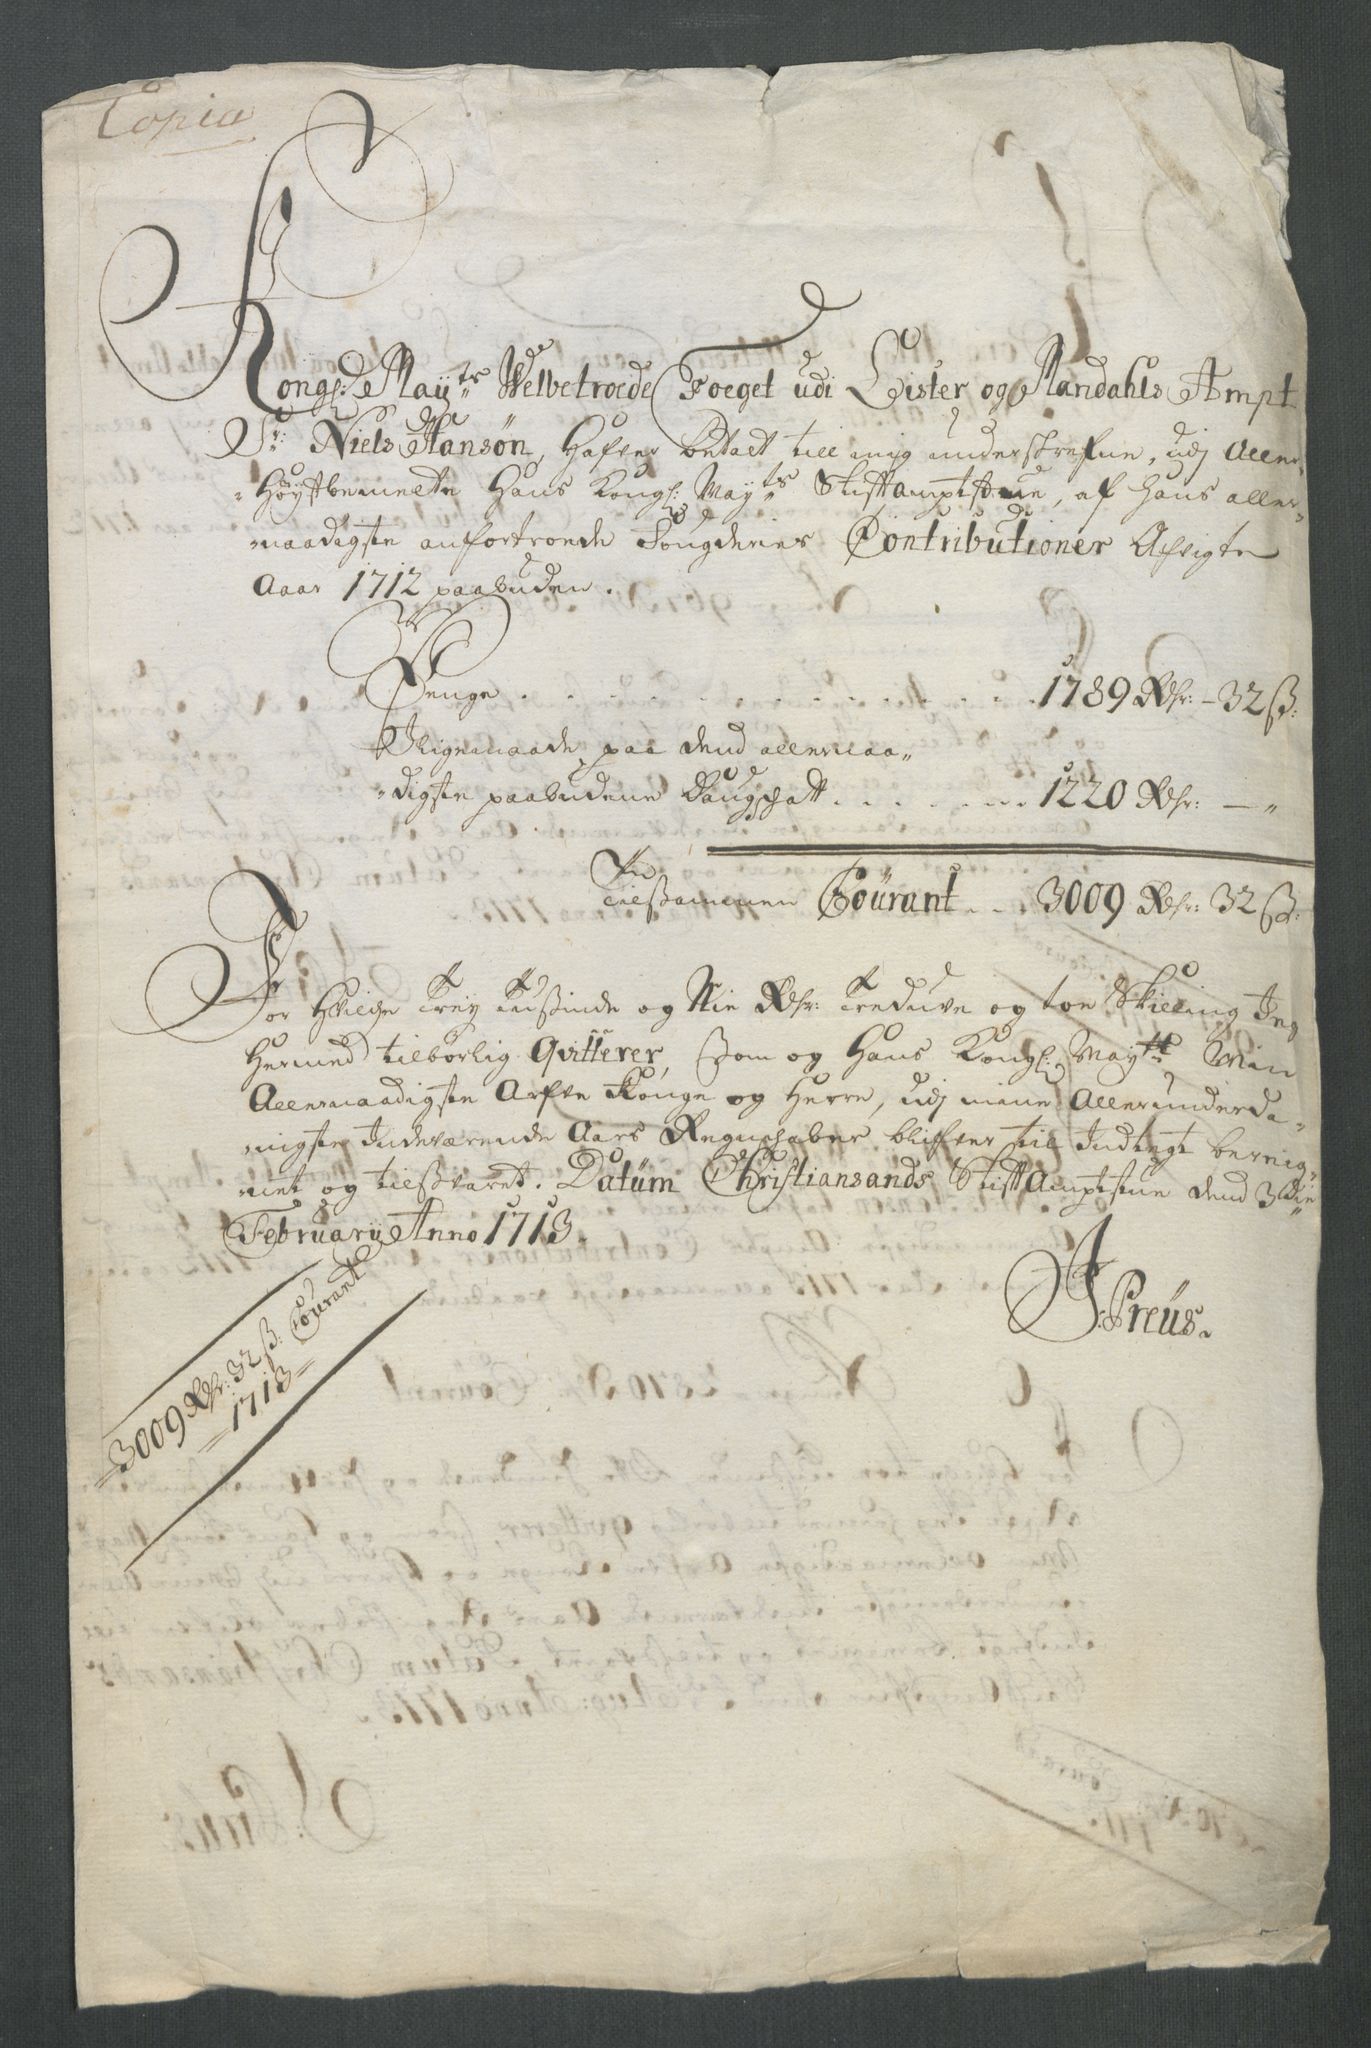 Copia
Kongl: May:ts Welbetroede Foeget udi Lister og Mandahls Ampt
Sr: Niels Hansøn, Hafver betalt till mig underskrefne, udj Aller-
Høystbemelte Hans Kongl: May:ts Stiftamptstue, af hans aller-
naadigste anfortroede Fougderies Contributioner Afvigte
Aar 1712 paabuden.
Penge . . . . . . . . . . . . 1789 Rdr: - 32 ß:
Ligemaade paa dend allernaa-
digste paabudene Daugskatt . . . . . . 1220 Rdr: — "
Tilsammen Courant . . 3009 Rdr: 32 ß:
For Hvilche Trey Tusinde og Nie Rdr: Treduve og toe Skilling Jeg
Hermed tilbørlig Qvitterer, som og Hans Kongl: May:tt Min
Allernaadigste Arfve Konge og Herre, udj mine Allerunderda-
nigste Indeværende Aars Regnschaber blifver til Indtegt bereig-
net og tilsvaret. Datum Christiansands StiftAmptstue dend 3die
February Anno 1713.
J: Preüs.
3009 Rdr: 32 ß: Courant
1713